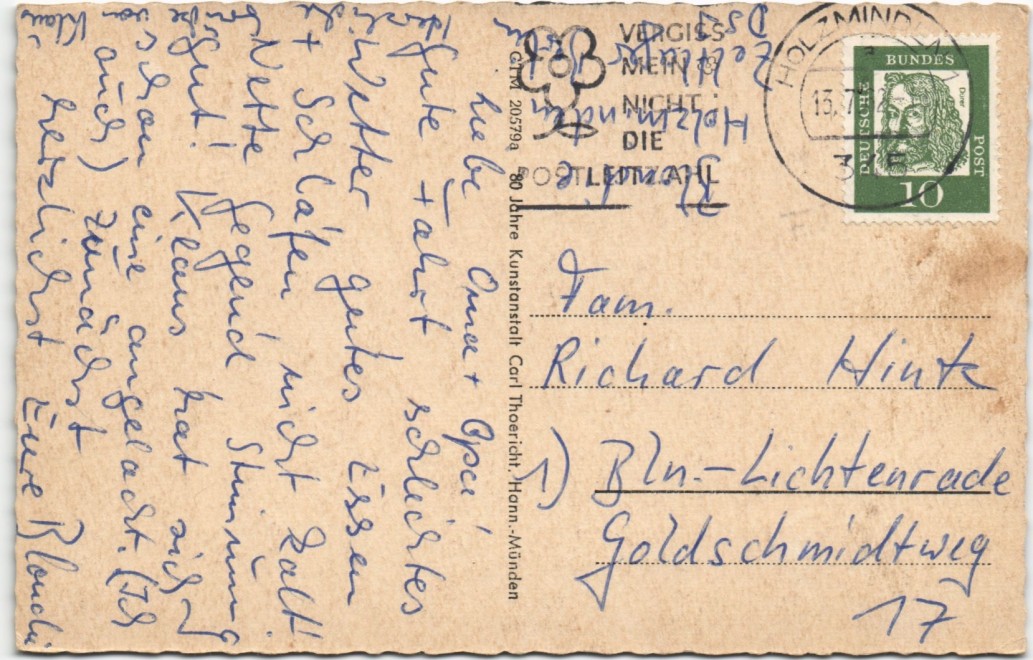 Liebe Oma + Opa!
Gute Fahrt schlechtes
Wetter gutes Essen
Schlafen nicht kalt!
Nette Gegend Stimmung
gut! Klaus hat sich
schon eine angelacht. (Ich
auch) zunächst
herzlichst Eure
GTM 20579a 80 Jahre Kunstanstalt Carl Thoericht, Hann.-Münden
Holzminden
VERGISS
MEIN
NICHT
DIE
POSTLEITZAHL
HOLZMINDEN
DEUTSCHE
BUNDES
POST
10
Fam.
Richard Hintz
1) Bln-Lichtenrade
Goldschmidtweg
17